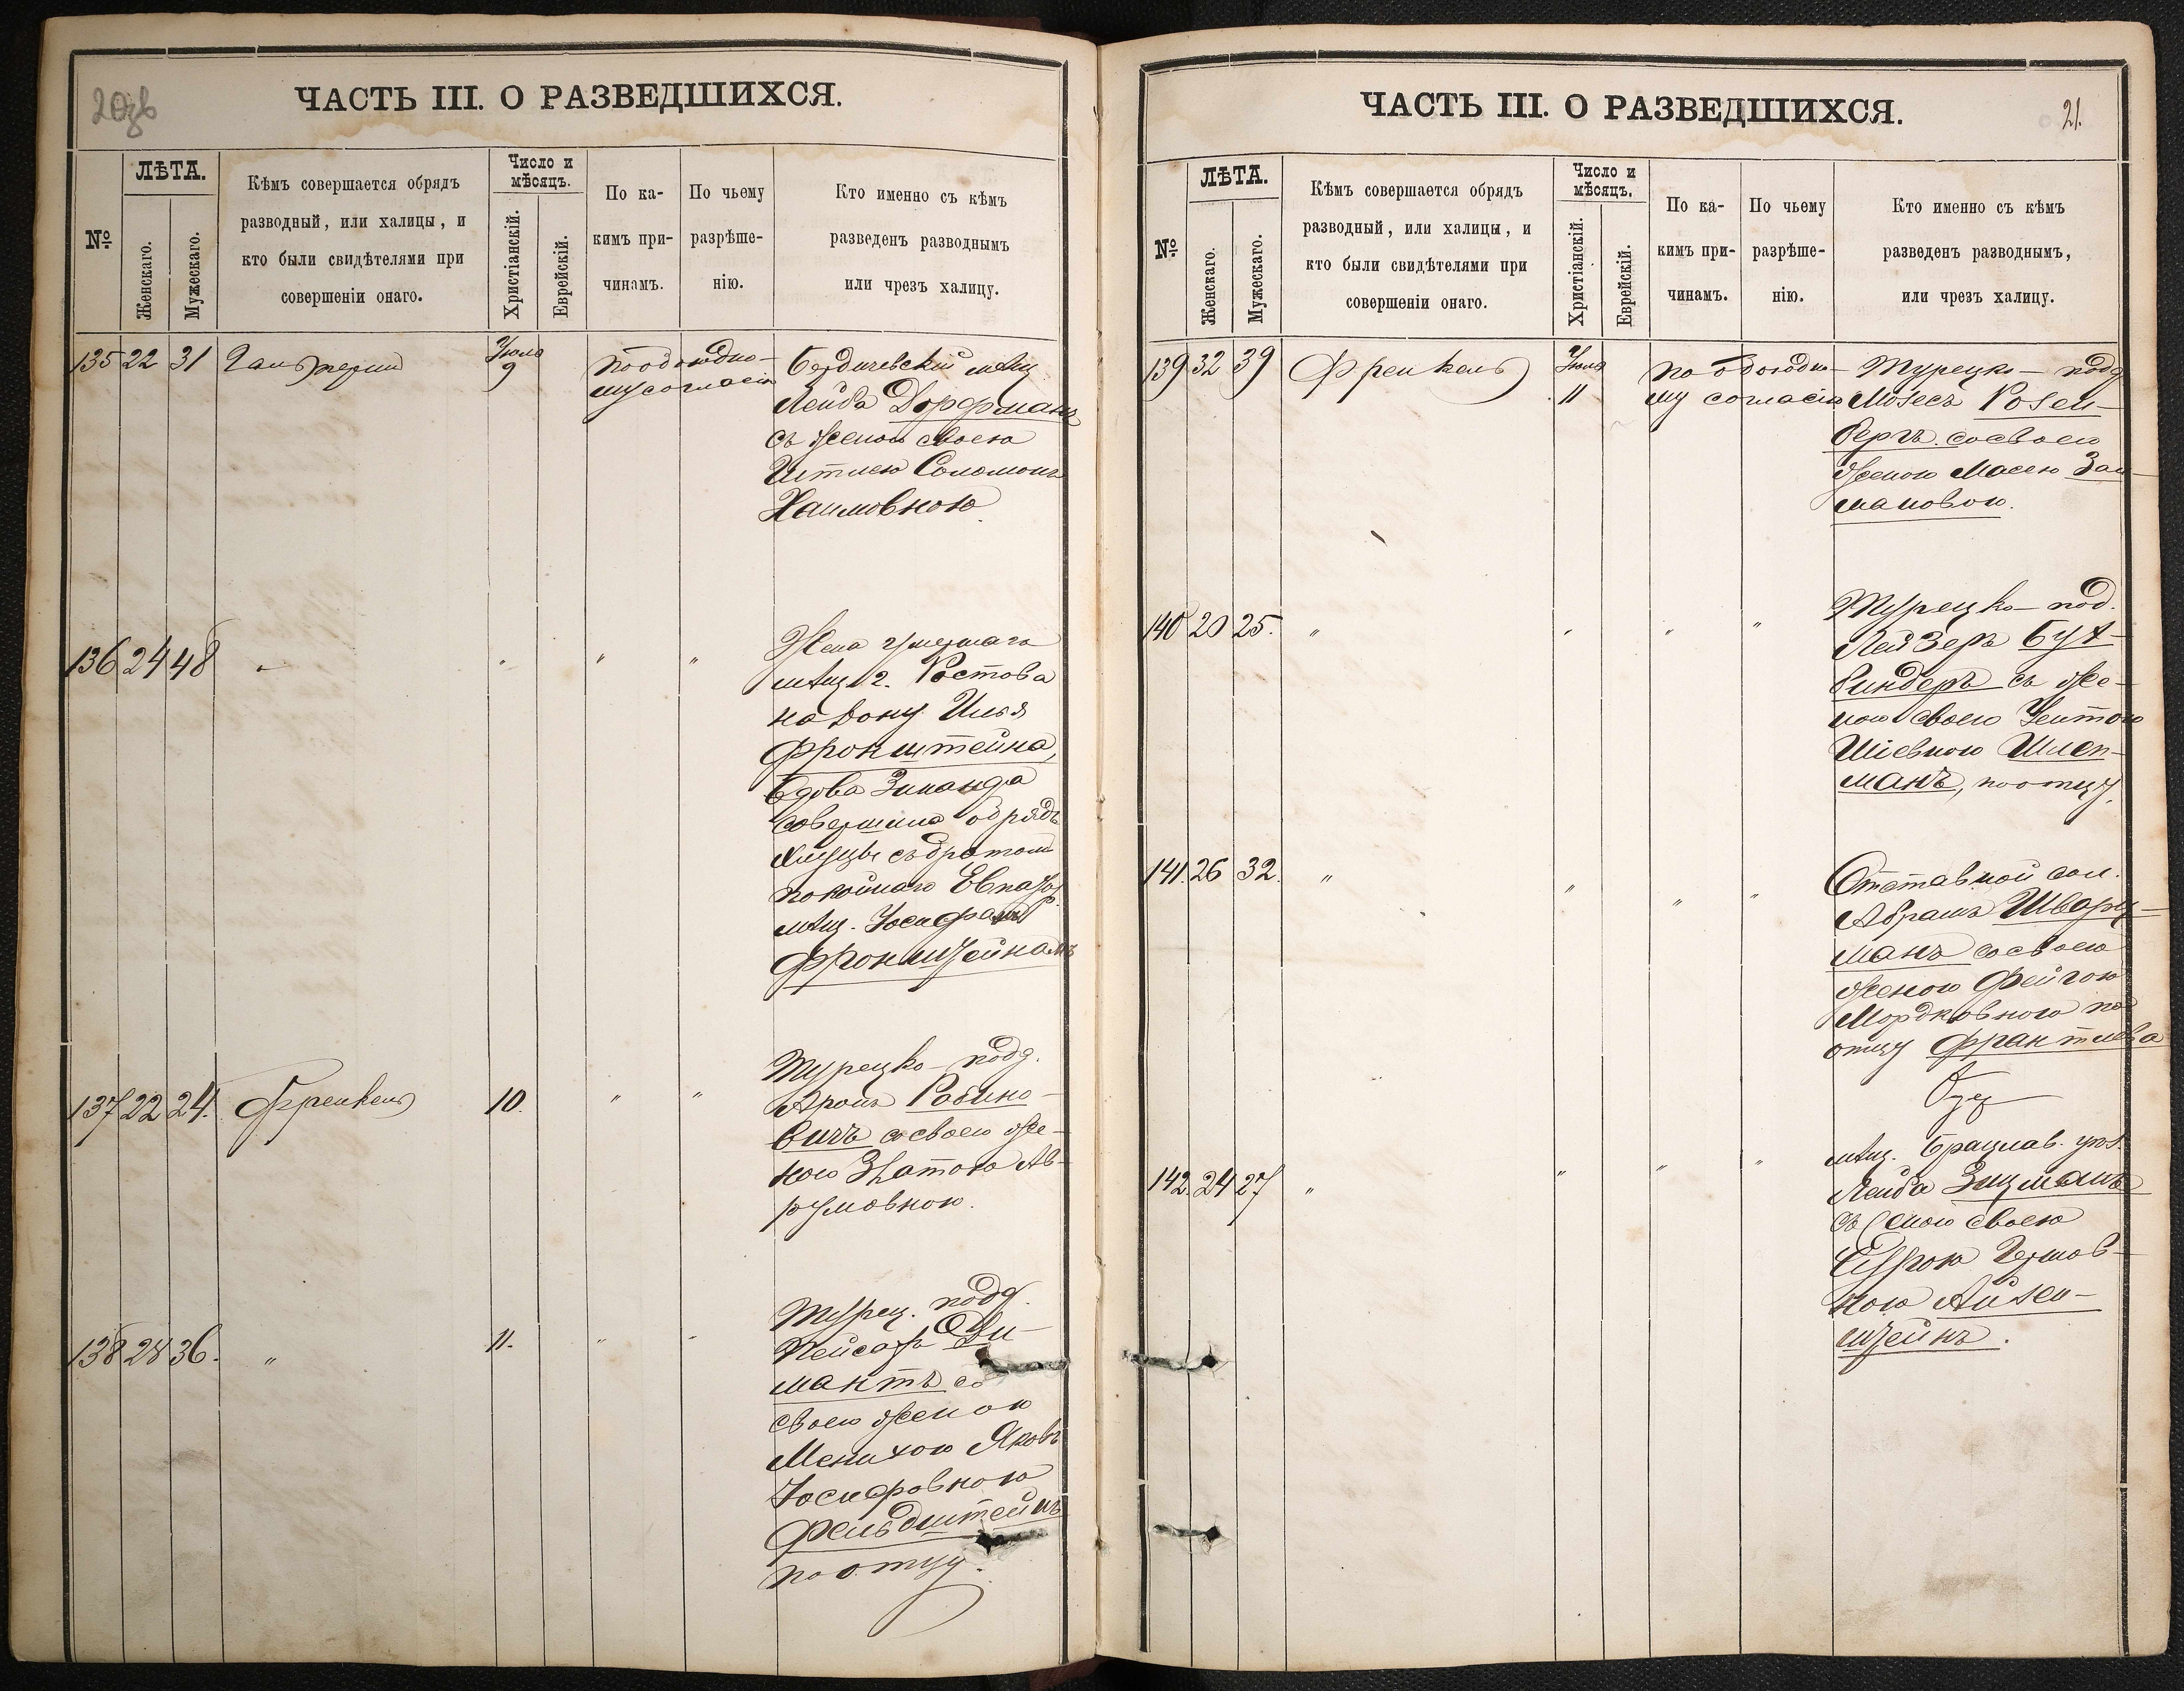 20об
ЧАСТЬ III. О РАЗВЕДШИХСЯ.
№
ЛѢТА.
Женскаго.
Мужескаго.
Кѣмъ совершается обрядъ
разводный, или халицы, и
кто были свидѣтелями при
совершеніи онаго.
Число и
мѣсяцъ.
Христіанскій.
Еврейскій.
По ка-
кимъ при-
чинамъ.
По чьему
разрѣше-
нію.
Кто именно съ кѣмъ
разведенъ разводнымъ
или чрезъ халицу.
135 22 31 Гальперинъ Іюля 9 По обоюдно-
му согласію
Бердичевскій мѣщ
Лейба Дорфманъ
съ женою своею
Итлею Соломонъ
Хаимовною
136 24 48 " " " "
Жена умершаго
мѣщ. г. Ростова
на Дону Илья
Фронштейна,
вдова Зинаида
совершила обрядъ
халицы съ братомъ
покойнаго
мѣщ. Іосифомъ
Фронштейномъ
137 22 24. Френкель 10. " "
Турецко-подд.
Аронъ Рабино-
вичъ со своею же-
ною Златою Ав-
румовною.
138 28 36. " 11. " "
Турец. подд.
Пейсахъ Ди-
мантъ со
своею женою
Менихою Яковъ
Іосифовною
Фельдштейнъ
по отцу.
ЧАСТЬ III. О РАЗВЕДШИХСЯ.
21.
№
ЛѢТА.
Женскаго.
Мужескаго.
Кѣмъ совершается обрядъ
разводный, или халицы, и
кто были свидѣтелями при
совершеніи онаго.
Число и
мѣсяцъ.
Христіанскій.
Еврейскій.
По ка-
кимъ при-
чинамъ.
По чьему
разрѣше-
нію.
Кто именно съ кѣмъ
разведенъ разводнымъ,
или чрезъ халицу.
139 32 39 Френкель Іюля 11 По обоюдно-
му согласію
Турецко-подд
Мозесъ Розен-
бергъ со своею
женою Масею Зал-
мановою.
140 20 25. " " " "
Турецко-под.
Лейзеръ Бух-
биндеръ съ же-
ною своею
Шіевною
манъ, по отцу.
141. 26 32. " " " "
Отставной сол.
Абрамъ Шварц-
манъ со своею
женою Фейгою
Мордковною по
отцу
142. 24 27 " " " "
мѣщ. Брацлав. уѣз.
Лейба Зицманъ
съ женою своею
Суррою Гершов-
ною Айзен-
штейнъ.